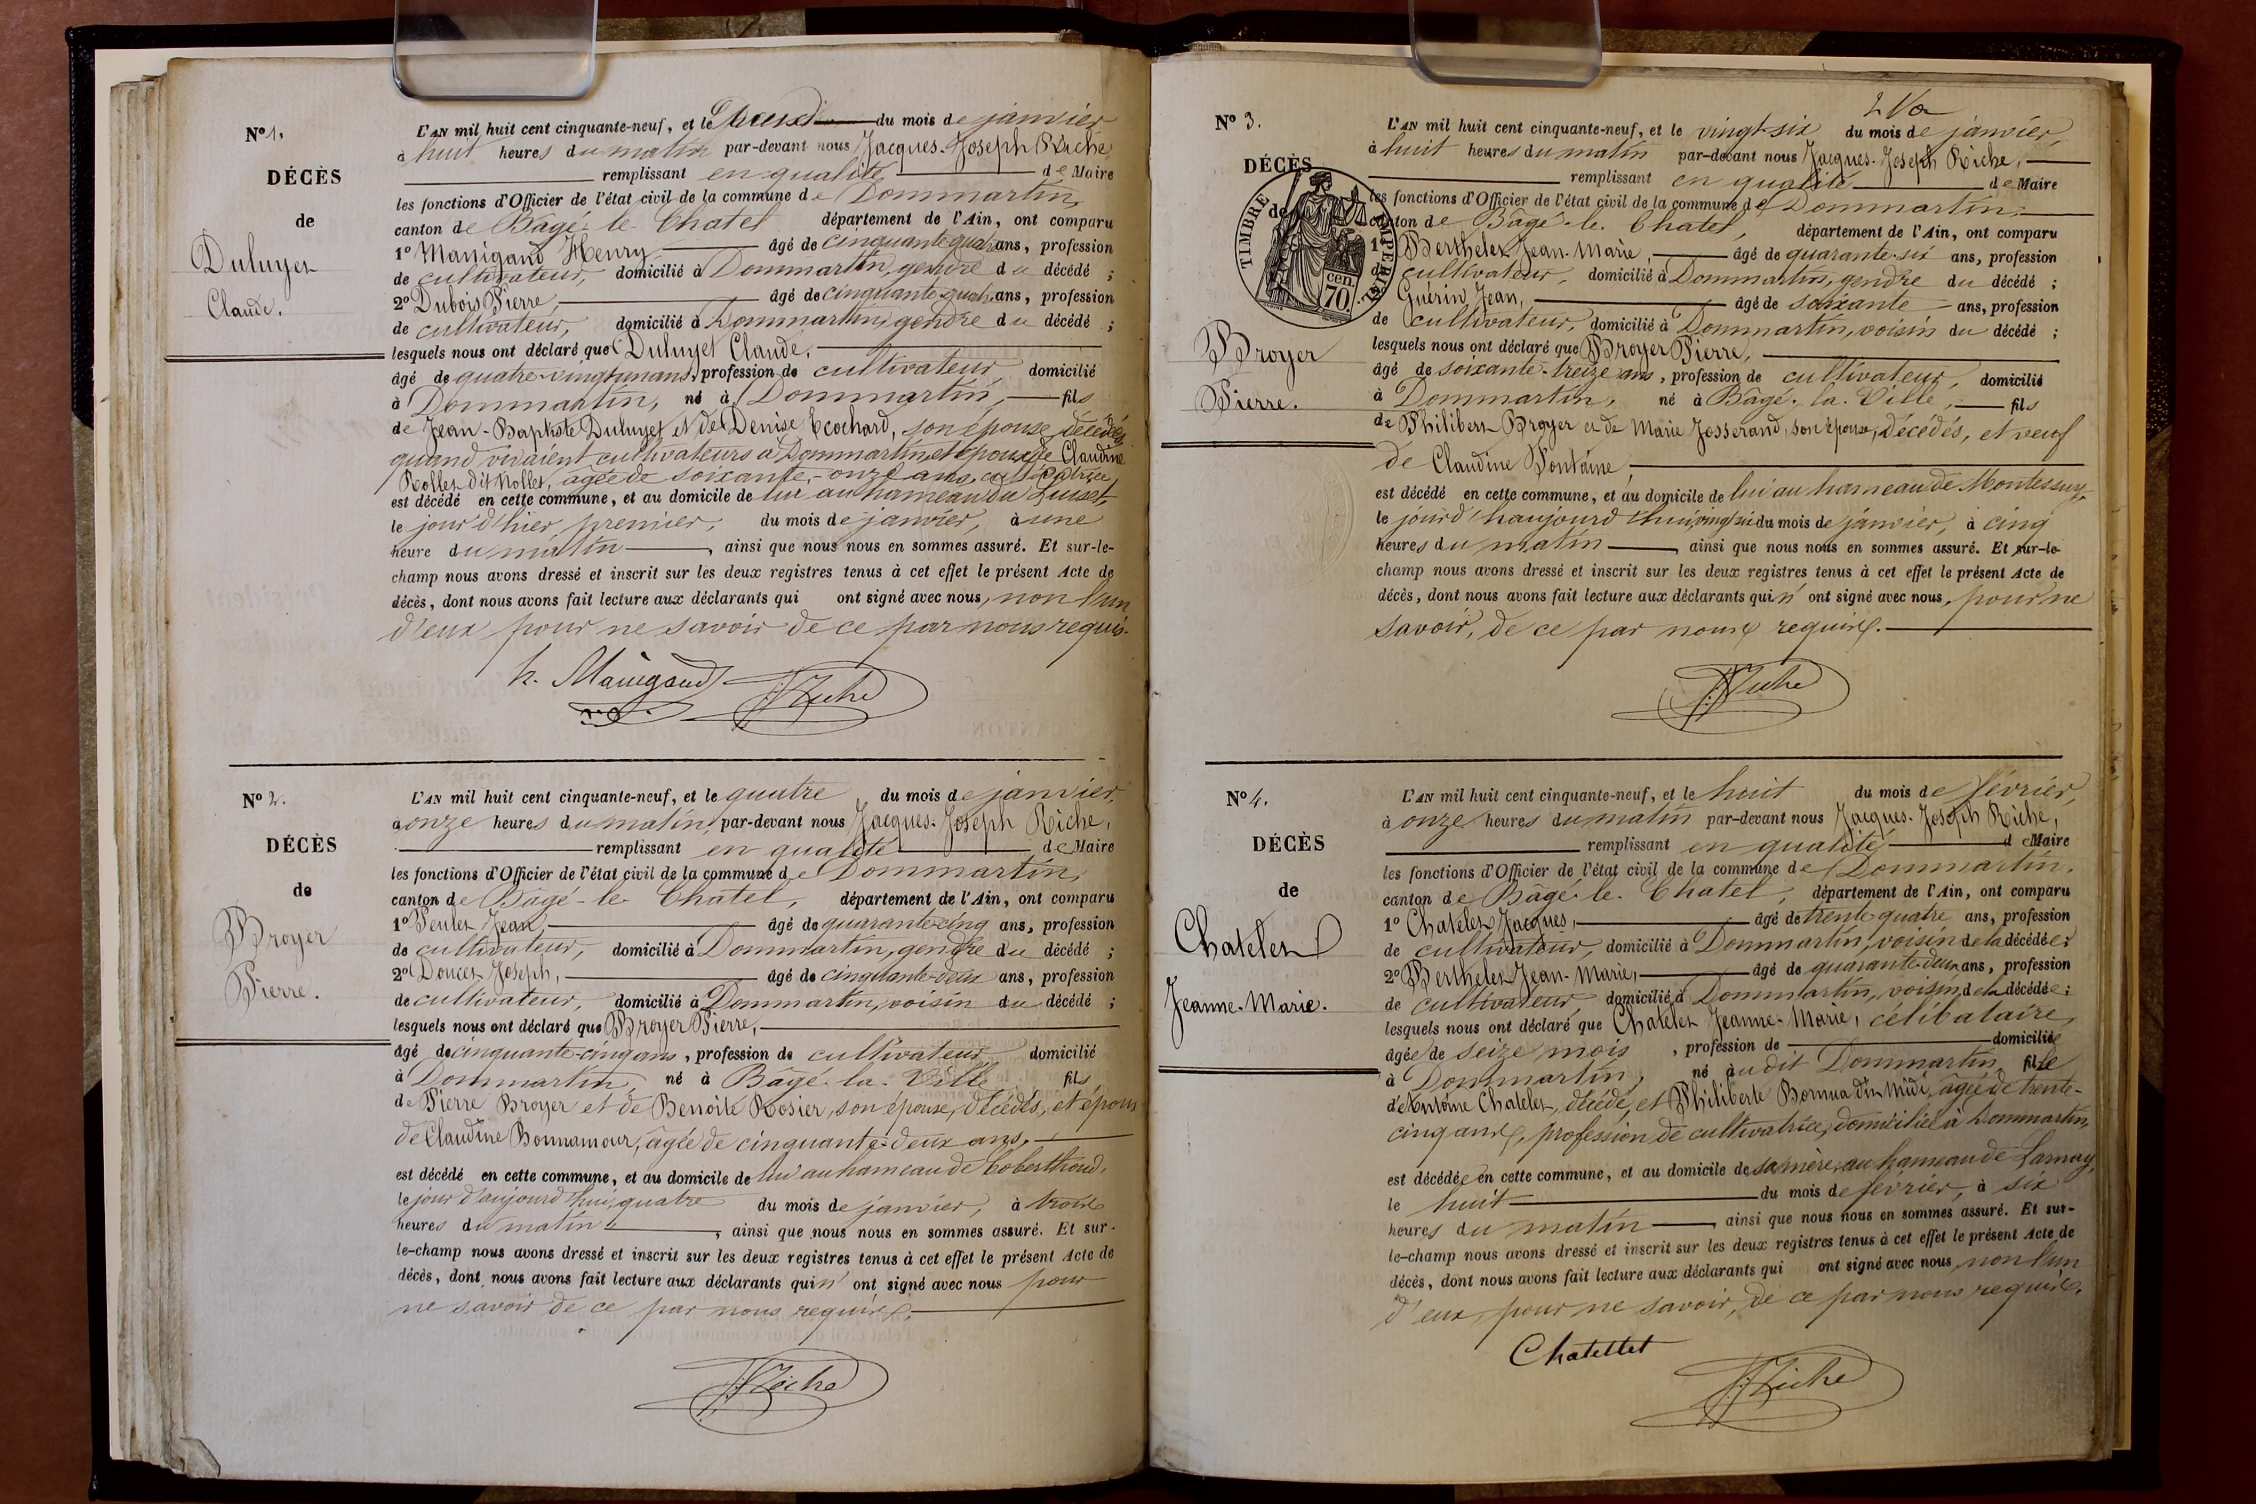 N° 1.
DÉCÈS
de
Duluyet
Claude.
L'AN mil huit cent cinquante-neuf, et le deux du mois de janvier
à huit heures du matin par-devant nous Jacques-Joseph Riche,
remplissant en qualité de Maire
les fonctions d'Officier de l'état civil de la commune de Dommartin,
canton de Bâgé-le-Chatel département de l'Ain, ont comparu
1° Manigand Henry âgé de cinquante quatre ans, profession
de cultivateur, domicilié à Dommartin, gendre du décédé ;
2° Dubois Pierre, âgé de cinquante-quatre ans, profession
de cultivateur, domicilié à Dommartin, gendre du décédé ;
lesquels nous ont déclaré que Duluyet Claude,
âgé de quatre-vingt-un ans, profession de cultivateur, domicilié
à Dommartin, né à Dommartin, fils
de Jean-Baptiste Duluyet et de Denise Ecochard, son épouse, décédés,
quand vivaient cultivateurs à Dommartin, et époux de Claudine
Rollet dit Nollet, âgée de soixante-onze ans, cultivatrice
est décédé en cette commune, et au domicile de lui au hameau du
le jour d'hier premier, du mois de janvier, à une
heure du matin, ainsi que nous nous en sommes assuré. Et sur-le-
champ nous avons dressé et inscrit sur les deux registres tenus à cet effet le présent Acte de
décès, dont nous avons fait lecture aux déclarants qui ont signé avec nous, non l'un
d'eux pour ne savoir de ce par nous requis.
h. Manigand J. Riche
N° 2.
DÉCÈS
de
Broyer
Pierre.
L'AN mil huit cent cinquante-neuf, et le quatre du mois de janvier,
à onze heures du matin, par-devant nous Jacques-Joseph Riche,
remplissant en qualité de Maire
les fonctions d'Officier de l'état civil de la commune de Dommartin,
canton de Bâgé-le-Chatel, département de l'Ain, ont comparu
1° Peulet Jean, âgé de quarante-cinq ans, profession
de cultivateur, domicilié à Dommartin, gendre du décédé ;
2° Doucet Joseph, âgé de cinquante-deux ans, profession
de cultivateur, domicilié à Dommartin, voisin du décédé ;
lesquels nous ont déclaré que Broyer Pierre,
âgé de cinquante-cinq ans, profession de cultivateur domicilié
à Dommartin, né à Bâgé-la-Ville fils
de Pierre Broyer et de Benoite Rosier, son épouse, décédés, et époux
de Claudine Bonnamour, âgée de cinquante-deux ans,
est décédé en cette commune, et au domicile de lui au hameau de Coberthoud,
le jour d'aujourd'hui, quatre du mois de janvier, à trois
heures du matin, ainsi que nous nous en sommes assuré. Et sur-
le-champ nous avons dressé et inscrit sur les deux registres tenus à cet effet le présent Acte de
décès, dont nous avons fait lecture aux déclarants qui n'ont signé avec nous pour
ne savoir de ce par nous requis.
J. Riche
N° 3.
DÉCÈS
de
TIMBRE IMPÉRIAL
70 cen.
Broyer
Pierre.
L'AN mil huit cent cinquante-neuf, et le vingt-six du mois de janvier,
à huit heures du matin par-devant nous Jacques-Joseph Riche,
remplissant en qualité de Maire
les fonctions d'Officier de l'état civil de la commune de Dommartin,
canton de Bâgé-le-Chatel, département de l'Ain, ont comparu
1° Berthelet Jean-Marie, âgé de quarante-six ans, profession
de cultivateur, domicilié à Dommartin, gendre du décédé ;
Guérin Jean, âgé de soixante ans, profession
de cultivateur, domicilié à Dommartin, voisin du décédé ;
lesquels nous ont déclaré que Broyer Pierre,
âgé de soixante-treize ans, profession de cultivateur, domicilié
à Dommartin, né à Bâgé-la-Ville, fils
de Philibert Broyer et de Marie Josserand, son épouse, décédés, et veuf
de Claudine Fontaine,
est décédé en cette commune, et au domicile de lui au hameau de Montessuy,
le jour d'haujourd'hui, vingt six du mois de janvier, à cinq
heures du matin, ainsi que nous nous en sommes assuré. Et sur-le-
champ nous avons dressé et inscrit sur les deux registres tenus à cet effet le présent Acte de
décès, dont nous avons fait lecture aux déclarants qui n'ont signé avec nous, pour ne
savoir, de ce par nous requis.
J. Riche
N° 4.
DÉCÈS
de
Chatelet
Jeanne-Marie.
L'AN mil huit cent cinquante-neuf, et le huit du mois de février,
à onze heures du matin par-devant nous Jacques-Joseph Riche,
remplissant en qualité de Maire
les fonctions d'Officier de l'état civil de la commune de Dommartin,
canton de Bâgé-le-Chatel, département de l'Ain, ont comparu
1° Chatelet Jacques, âgé de trente quatre ans, profession
de cultivateur, domicilié à Dommartin, voisin de la décédée ;
2° Berthelet Jean-Marie, âgé de quarante-deux ans, profession
de cultivateur, domicilié à Dommartin, voisin de la décédée ;
lesquels nous ont déclaré que Chatelet Jeanne-Marie, célibataire,
âgée de seize mois, profession de domiciliée
à Dommartin, né au dit Dommartin, fille
d'Antoine Chatelet, décédé, et Philiberte dit Midi, âgée de trente-
cinq ans, profession de cultivatrice, domiciliée à Dommartin,
est décédée en cette commune, et au domicile de sa mère, au hameau de Larnay,
le huit du mois de février, à six
heures du matin, ainsi que nous nous en sommes assuré. Et sur-
le-champ nous avons dressé et inscrit sur les deux registres tenus à cet effet le présent Acte de
décès, dont nous avons fait lecture aux déclarants qui ont signé avec nous, non l'un
d'eux, pour ne savoir, de ce par nous requis.
Chatellet
J. Riche